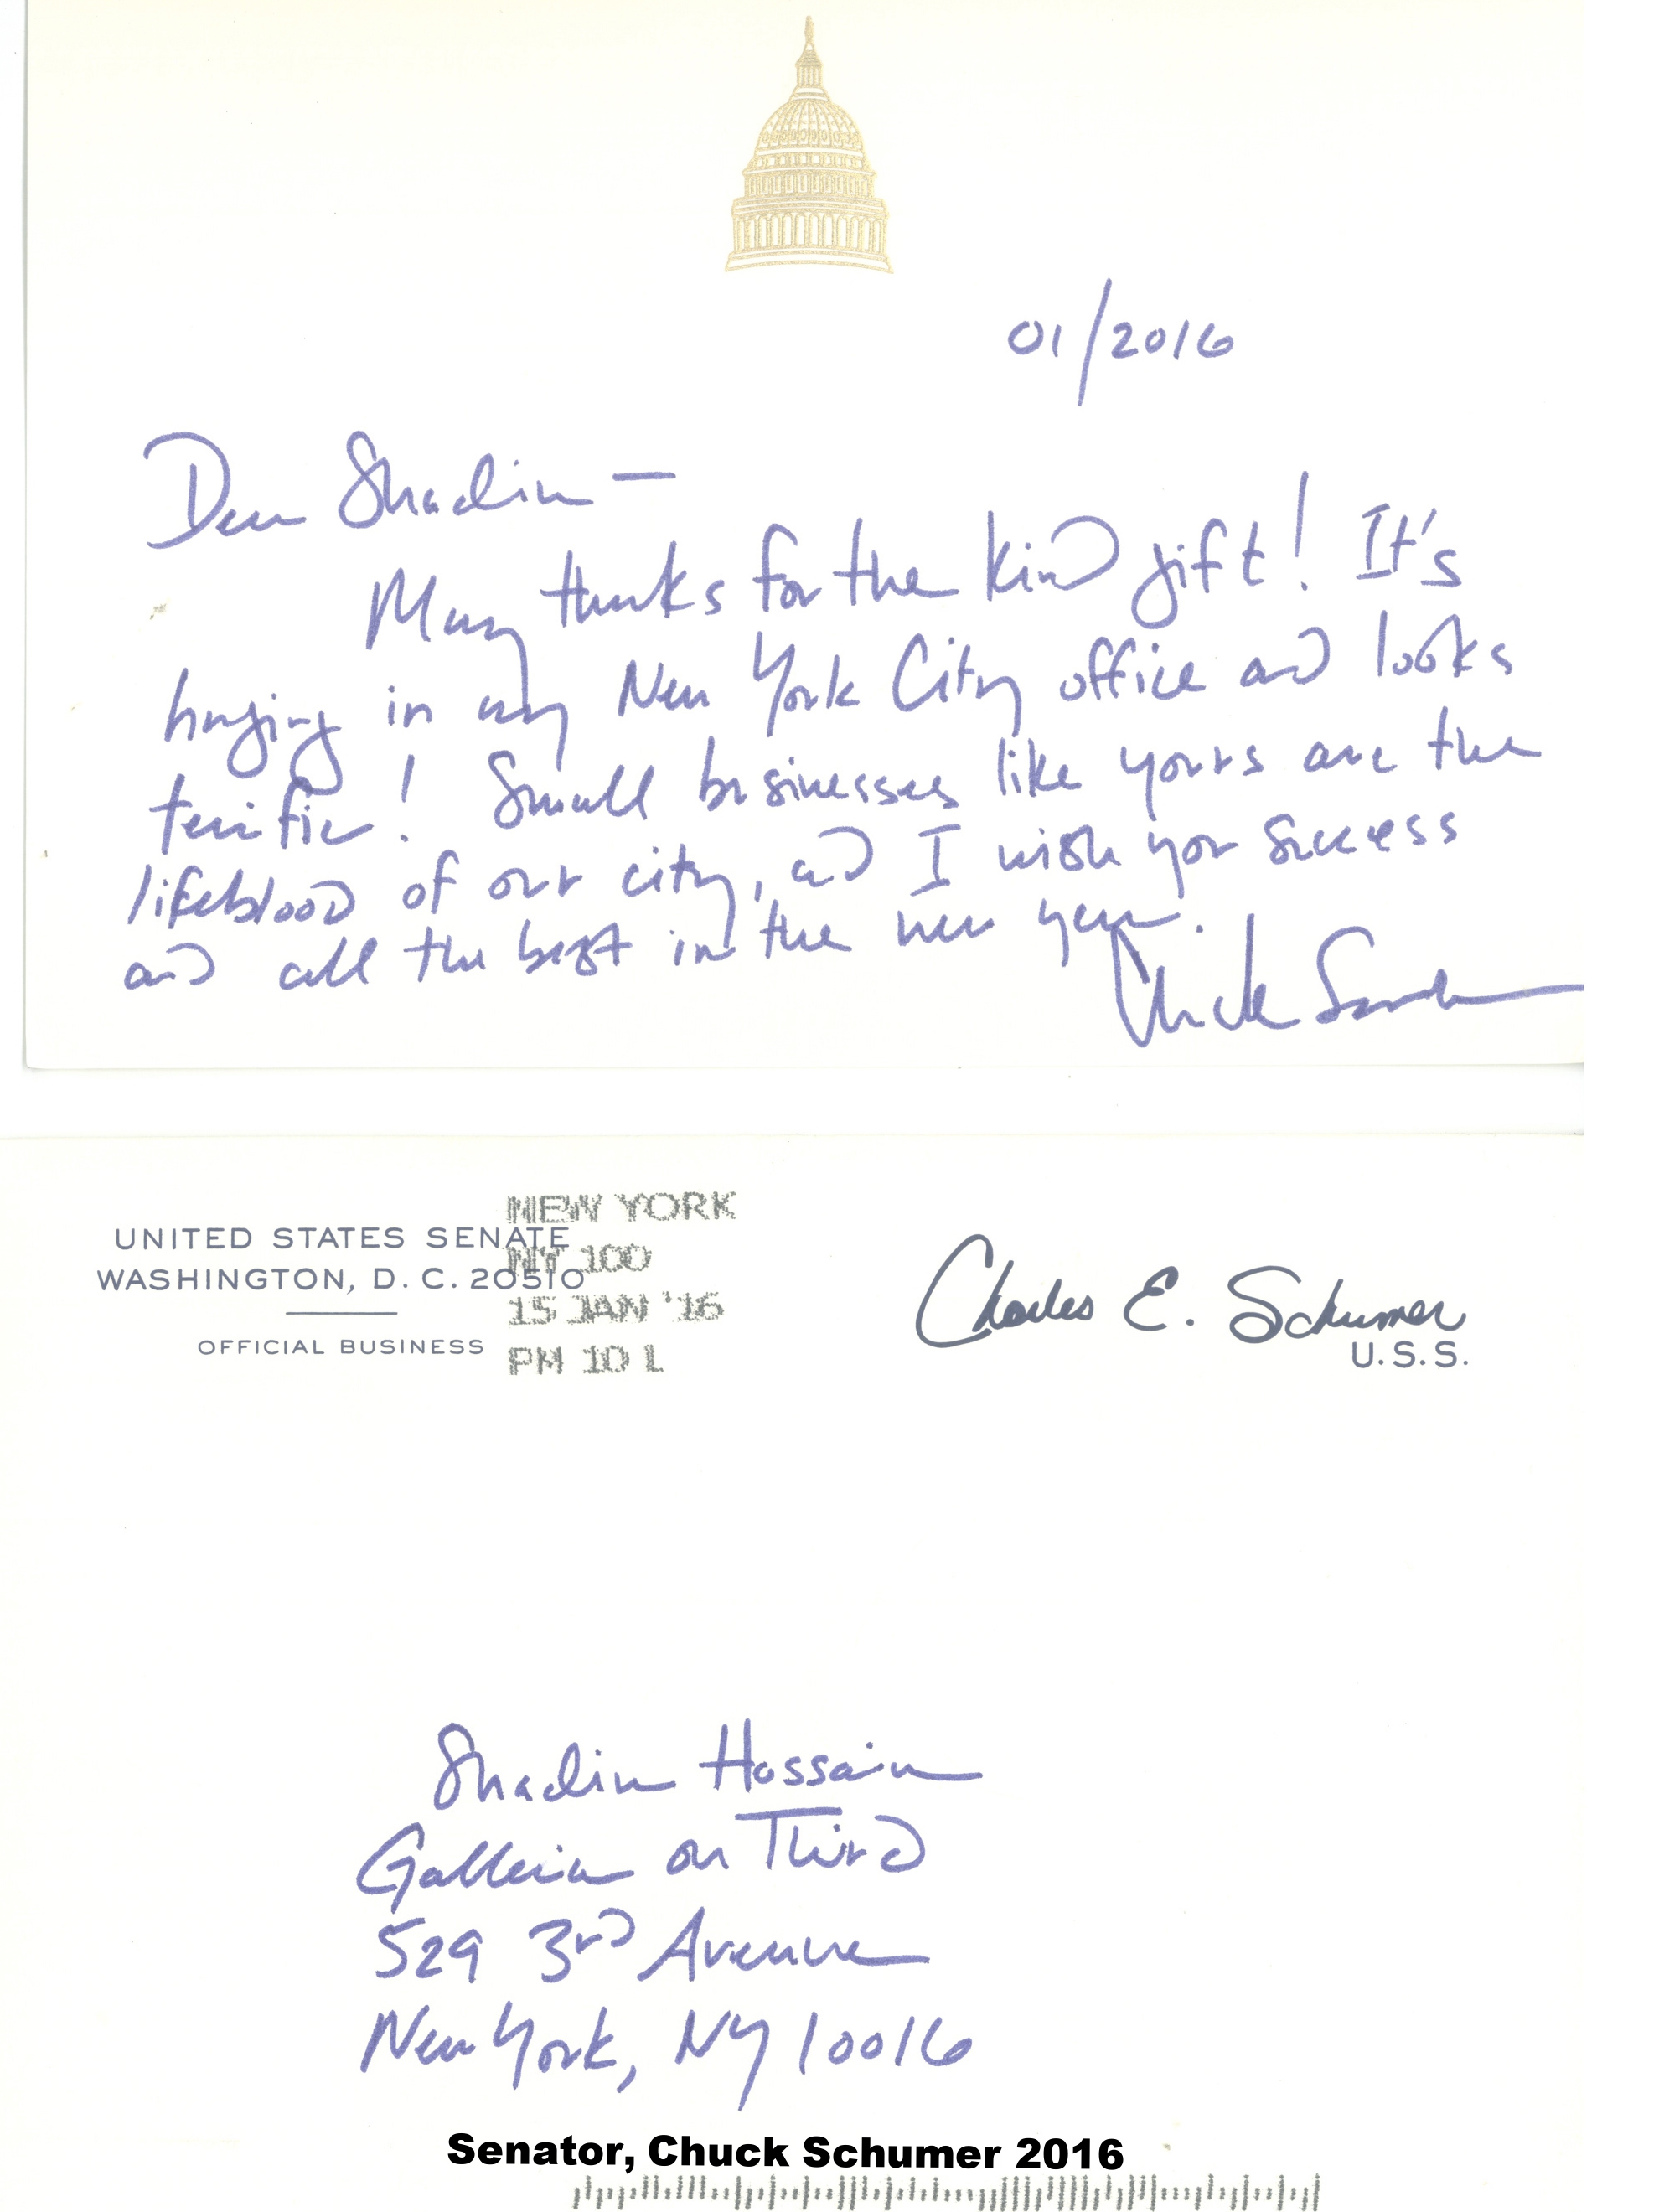 01/2016
Dear Shadin —
Many thanks for the kind gift! It's
hanging in my New York City office and looks
terrific! Small businesses like yours are the
lifeblood of our city, and I wish you success
and all the best in the new year.
Chuck Schumer
UNITED STATES SENATE
WASHINGTON, D. C. 20510
OFFICIAL BUSINESS
NEW YORK
NY 100
15 JAN '16
PM 10 L
Charles E. Schumer
U.S.S.
Shadin Hossain
Galleria on Third
529 3rd Avenue
New York, NY 10016
Senator, Chuck Schumer 2016